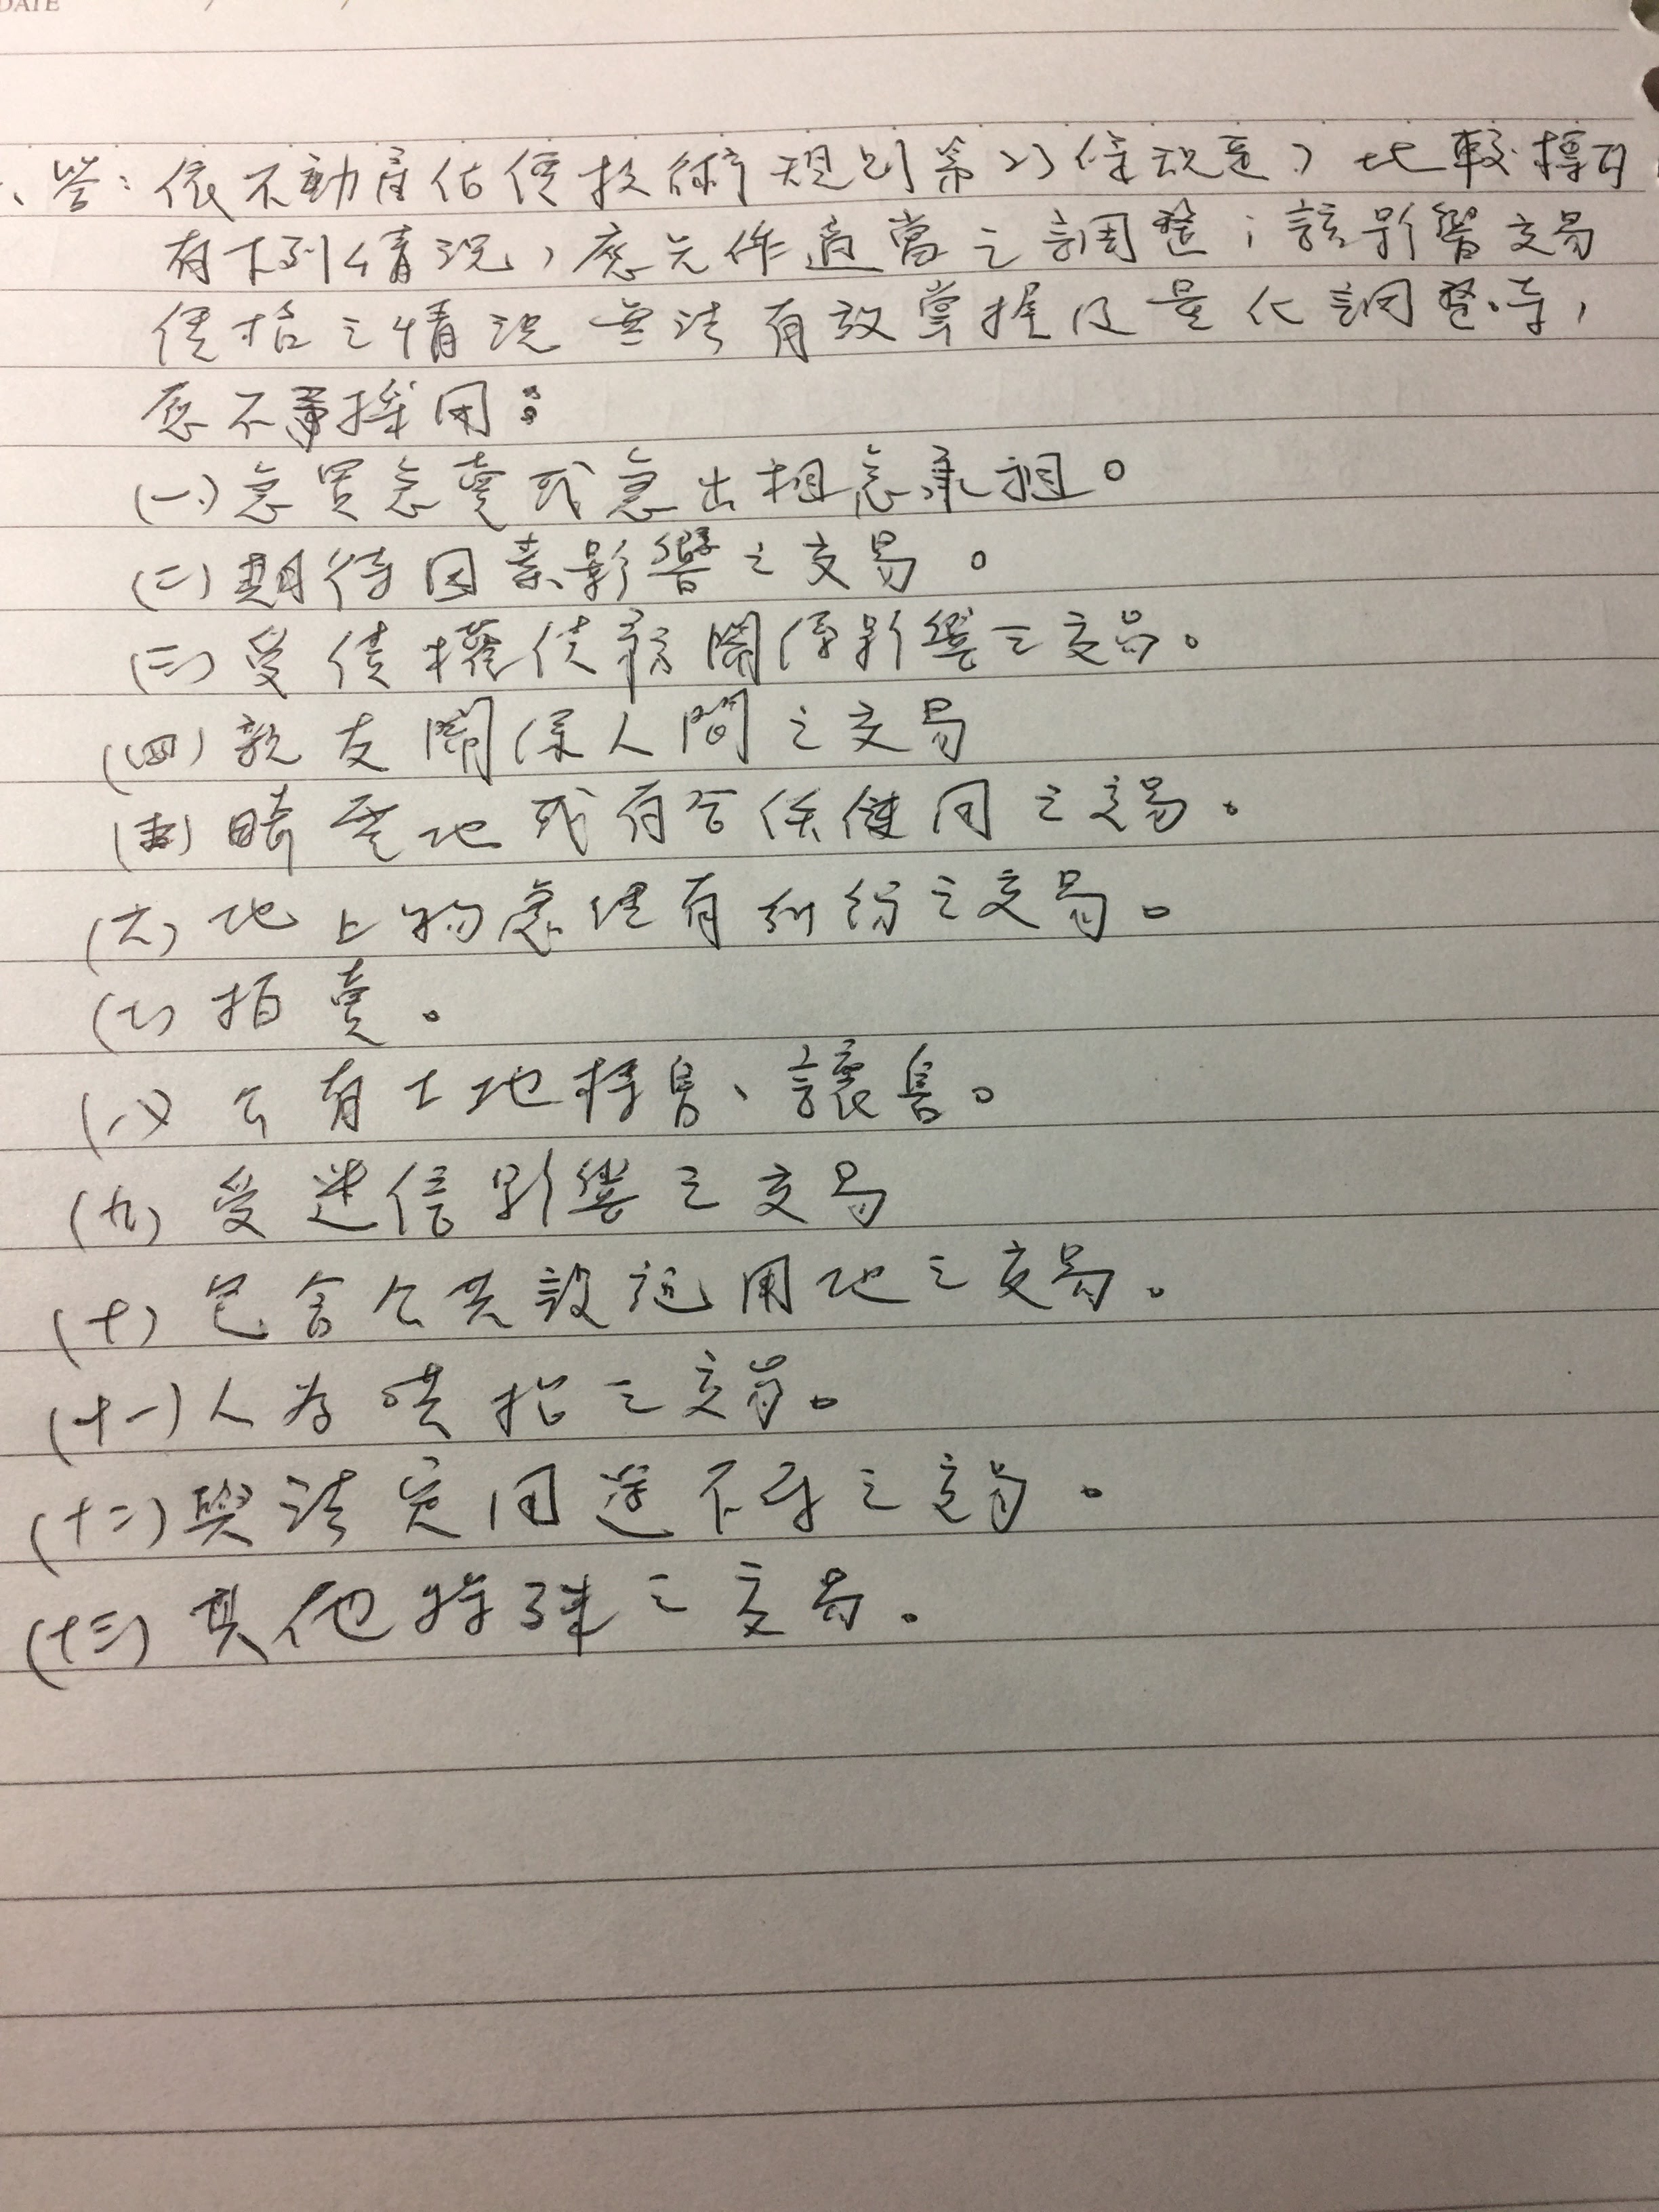 DATE / /
、答：依不動產估價技術規則第23條規定，比較標的
有下列情況，應先作適當之調整；該影響交易
價格之情況無法有效掌握及量化調整時，
應不予採用：
(一)急買急賣或急出租急承租。
(二)期待因素影響之交易。
(三)受債權債務關係影響之交易。
(四)親友關係人間之交易
(五)畸零地或有合併使用之交易。
(六)地上物處理有糾紛之交易。
(七)拍賣。
(八)公有土地標售、讓售。
(九)受迷信影響之交易
(十)包含公共設施用地之交易。
(十一)人為哄抬之交易。
(十二)與法定用途不符之交易。
(十三)其他特殊之交易。